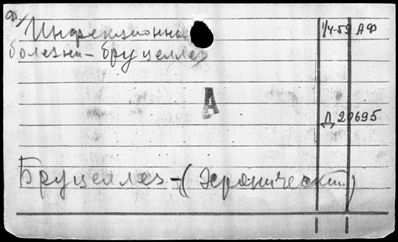 Инфекционные 1/4-59 АФ
болезни - бруцеллез
А
Д 20695
Бруцеллез - (хронический)